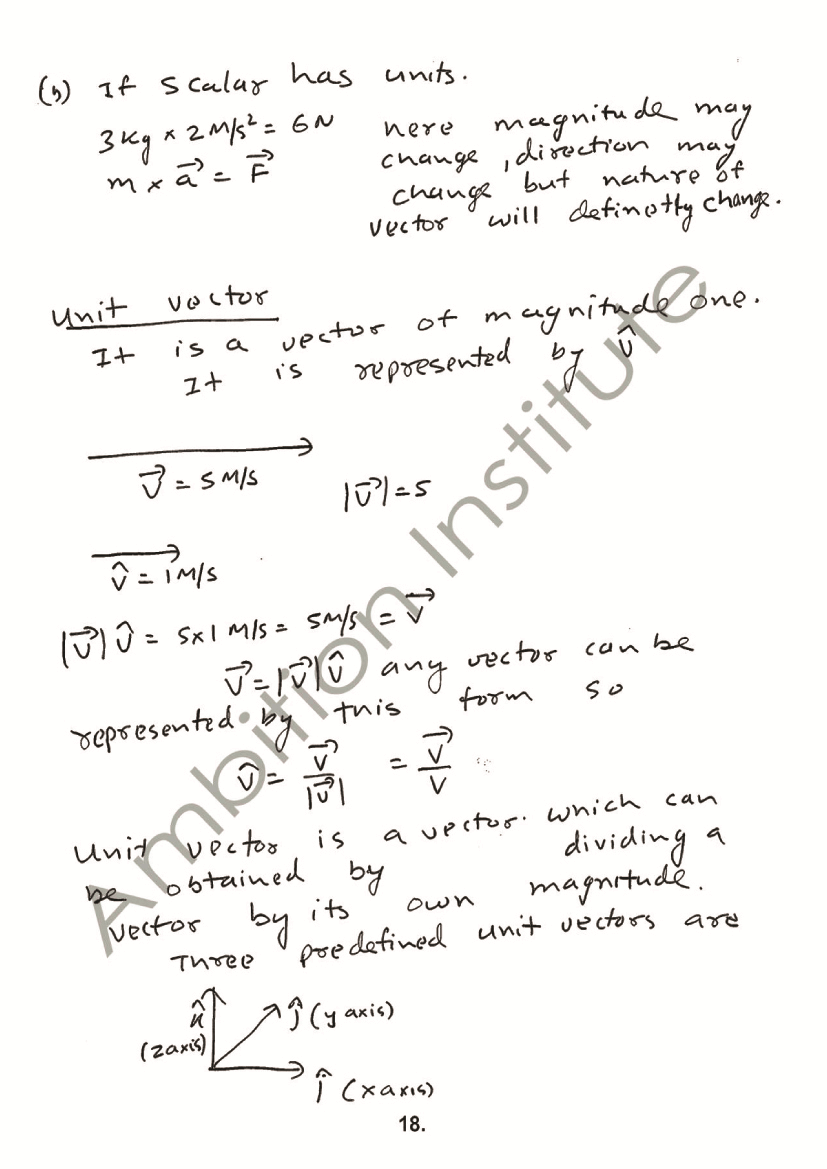 (b) If Scalar has units.
3 Kg × 2 M/s² = 6N here magnitude may
m × a⃗ = F⃗ change, direction may
change but nature of
vector will definotly change.
Unit vector
It is a vector of magnitude one.
It is represented by v̂
v⃗ = 5 M/s |v⃗| = 5
v̂ = 1 M/s
|v⃗| v̂ = 5×1 M/s = 5M/s = v⃗
v⃗ = |v⃗| v̂ any vector can be
represented by this form so
v̂ = v⃗/|v⃗| = v⃗/v
Unit vector is a vector. which can
be obtained by dividing a
vector by its own magnitude.
Three predefined unit vectors are
k̂ ĵ (y axis)
(z axis)
î (x axis)
18.
Ambition Institute